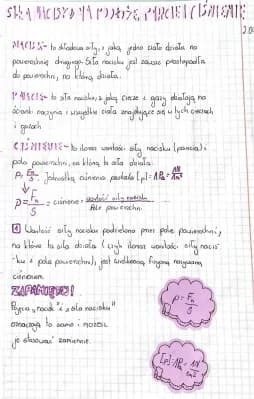 SIŁA NACISKU NA PODŁOŻE, PARCIE I CIŚNIENIE
NACISK- to składowa siły, z jaką jedno ciało działa na
powierzchnię drugiego. Siła nacisku jest zawsze prostopadła
do powierzchni, na którą działa.
PARCIE- to siła nacisku, z jaką ciecze i gazy działają na
ścianki naczynia i wszystkie ciała znajdujące się w tych cieczach
i gazach
CIŚNIENIE- to iloraz wartości siły nacisku (parcia) i
pola powierzchni, na którą ta siła działa:
p = Fn/S. Jednostką ciśnienia paskal: [p] = 1Pa = 1N/1m²
p = Fn/S = ciśnienie = wartość siły nacisku / Pole powierzchni
Wartość siły nacisku podzielona przez pole powierzchni,
na którą ta siła działa (czyli iloraz wartości siły nacis-
ku i pola powierzchni), jest wielkością fizyczną nazywaną
ciśnieniem.
ZAPAMIĘTAJ!
Pojęcia „nacisk" i „siła nacisku"
oznaczają to samo i można
je stosować zamiennie.
p = Fn/S
[p] = 1Pa = 1N/1m²